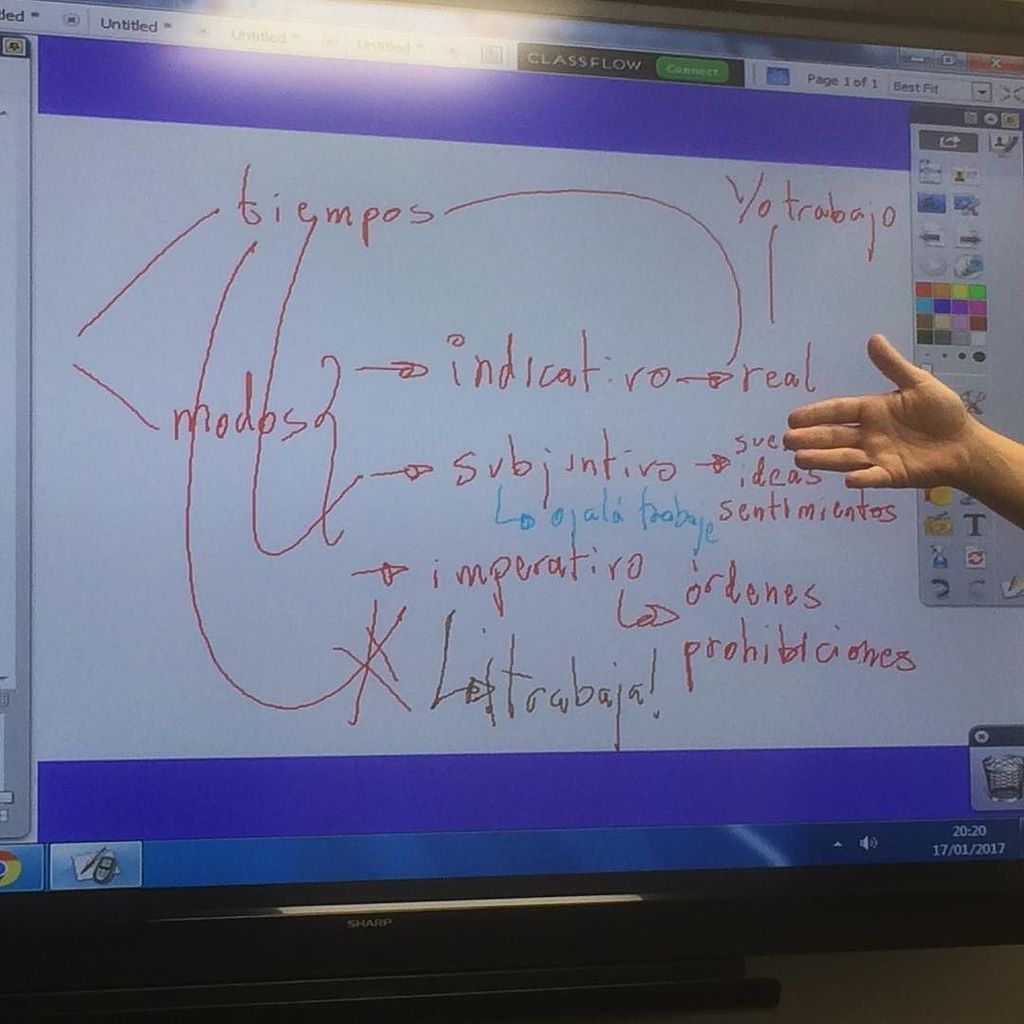 Untitled *
Untitled *
Untitled *
CLASSFLOW
Connect
Page 1 of 1
Best Fit
tiempos
Yo trabajo
modos
→ indicativo → real
→ subjuntivo →
ideas
sentimientos
ojalá trabaje
→ imperativo
órdenes
prohibiciones
¡trabaja!
T
20:20
17/01/2017
SHARP